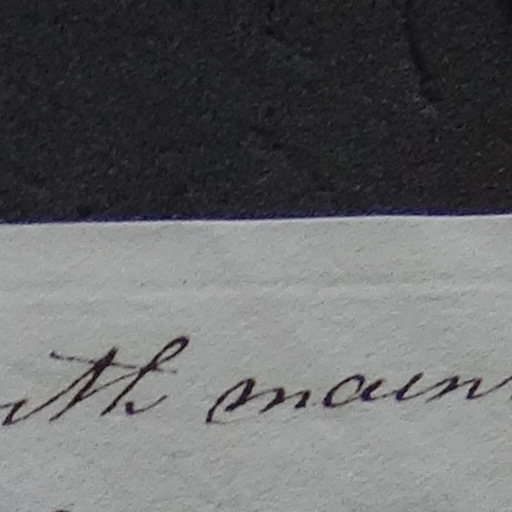 uth main